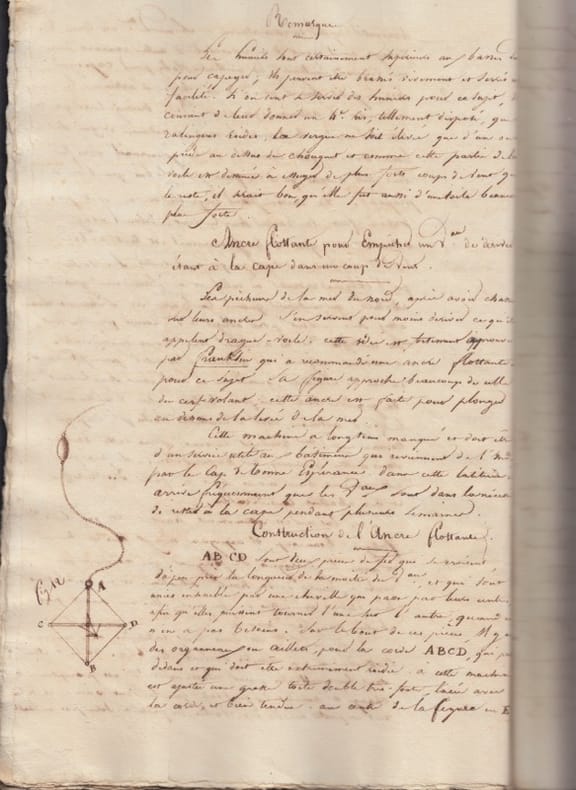 Remarque
Les huniers sont certainement supérieurs aux basses
pour capeyer, ils peuvent être brassés vivement et serrés
facilité. Si on veut se servir des huniers pour ce sujet,
courant de leur donner un 4e. ris, tellement disposé, que
ralingues roides, la vergue ne soit élevée que d'un ou
pieds au dessus du chouquet et comme cette partie de la
voile est destinée à essuyer de plus forts coups de vent que
le reste, il serait bon, qu'elle fut aussi d'une toile beaucoup
plus forte.
Ancre flottant pour Empêcher un Veau de dériver
étant à la cape dans un coup de vent.
Les pêcheurs de la mer du nord, après avoir chassé
sur leurs ancres s'en servent pour moins dériver ce qu'ils
appelent drague-voile. cette idée est fortement approuvée
par Franklin qui a recommandé une ancre flottante
pour ce sujet. La figure approche beaucoup de celle
du cerf volant. cette ancre est faite pour plonger
au dessous de la levée de la mer
Cette machine a longtems manqué et doit être
d'un service utile aux batimens qui reviennent de l'Inde
par le cap de bonne Espérance dans cette latitude
arrive fréquemment que les Veaux sont dans la nécessité
de rester à la cape pendant plusieurs semaines.
Construction de l'Ancre flottante.
ABCD sont deux pièces de fer qui se croisent
la longueur de la moitié de Veau et qui sont
unies ensemble par une cheville qui passe par leurs centres
afin qu'elles puissent tourner l'une sur l'autre, quand on
n'en a pas besoin. Sur le bout de ces pièces, il y a
des organeaux ou œillets, pour la corde ABCD, qui passe
dedans et qui doit être extrêmement roidie. à cette machine
est ajustée une grosse toile double très-forte, lacée avec
la corde, et bien tendue. au centre de la figure en E
fig. 12
A
C
D
B